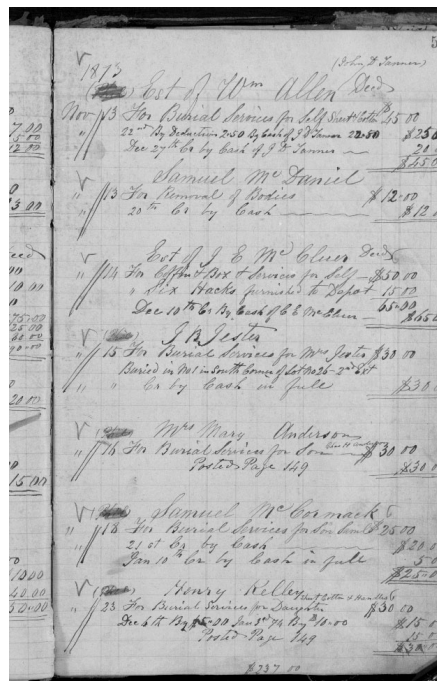 5
(John D Tanner)
1873
Est of Wm Allen Decd
Nov 13 For Burial Services for Self $45 00
22nd By Deduction 2.50 By Cash of J D Tanner 22.50 $25 0
Dec 27th Cr by Cash of J D Tanner 20
$45 0
Samuel Mc Daniel
" 13 For Removal of Bodies $12.00
" 20th Cr by Cash $12 0
Est of J E Mc Cluer Decd
" 14 For Coffin & Box & Services for Self $50 00
" " Six Hacks furnished to Depot 15 00
Dec 10th Cr By Cash of C E McCluer 65.00 $65 0
J B Jester
" 15 For Burial Services for Mrs Jester $30 00
Buried in South Corner of Lot No 26 - 2nd Ext
" " Cr by Cash in full $30 0
Mrs Mary Anderson
" 16 For Burial Services for Son $30 00
Posted Page 149 $30 0
Samuel Mc Cormack
" 18 For Burial Services for Son $25 00
21st Cr by Cash $20 0
Jan 10th Cr by Cash in full 5 0
$25.00
Henry Keller
" 23 For Burial Services for Daughter $30 00
Dec 6th By $5.00 Jan 3rd 74 By $10.00 $15 0
Posted Page 149 15 0
$30 0
$237.00